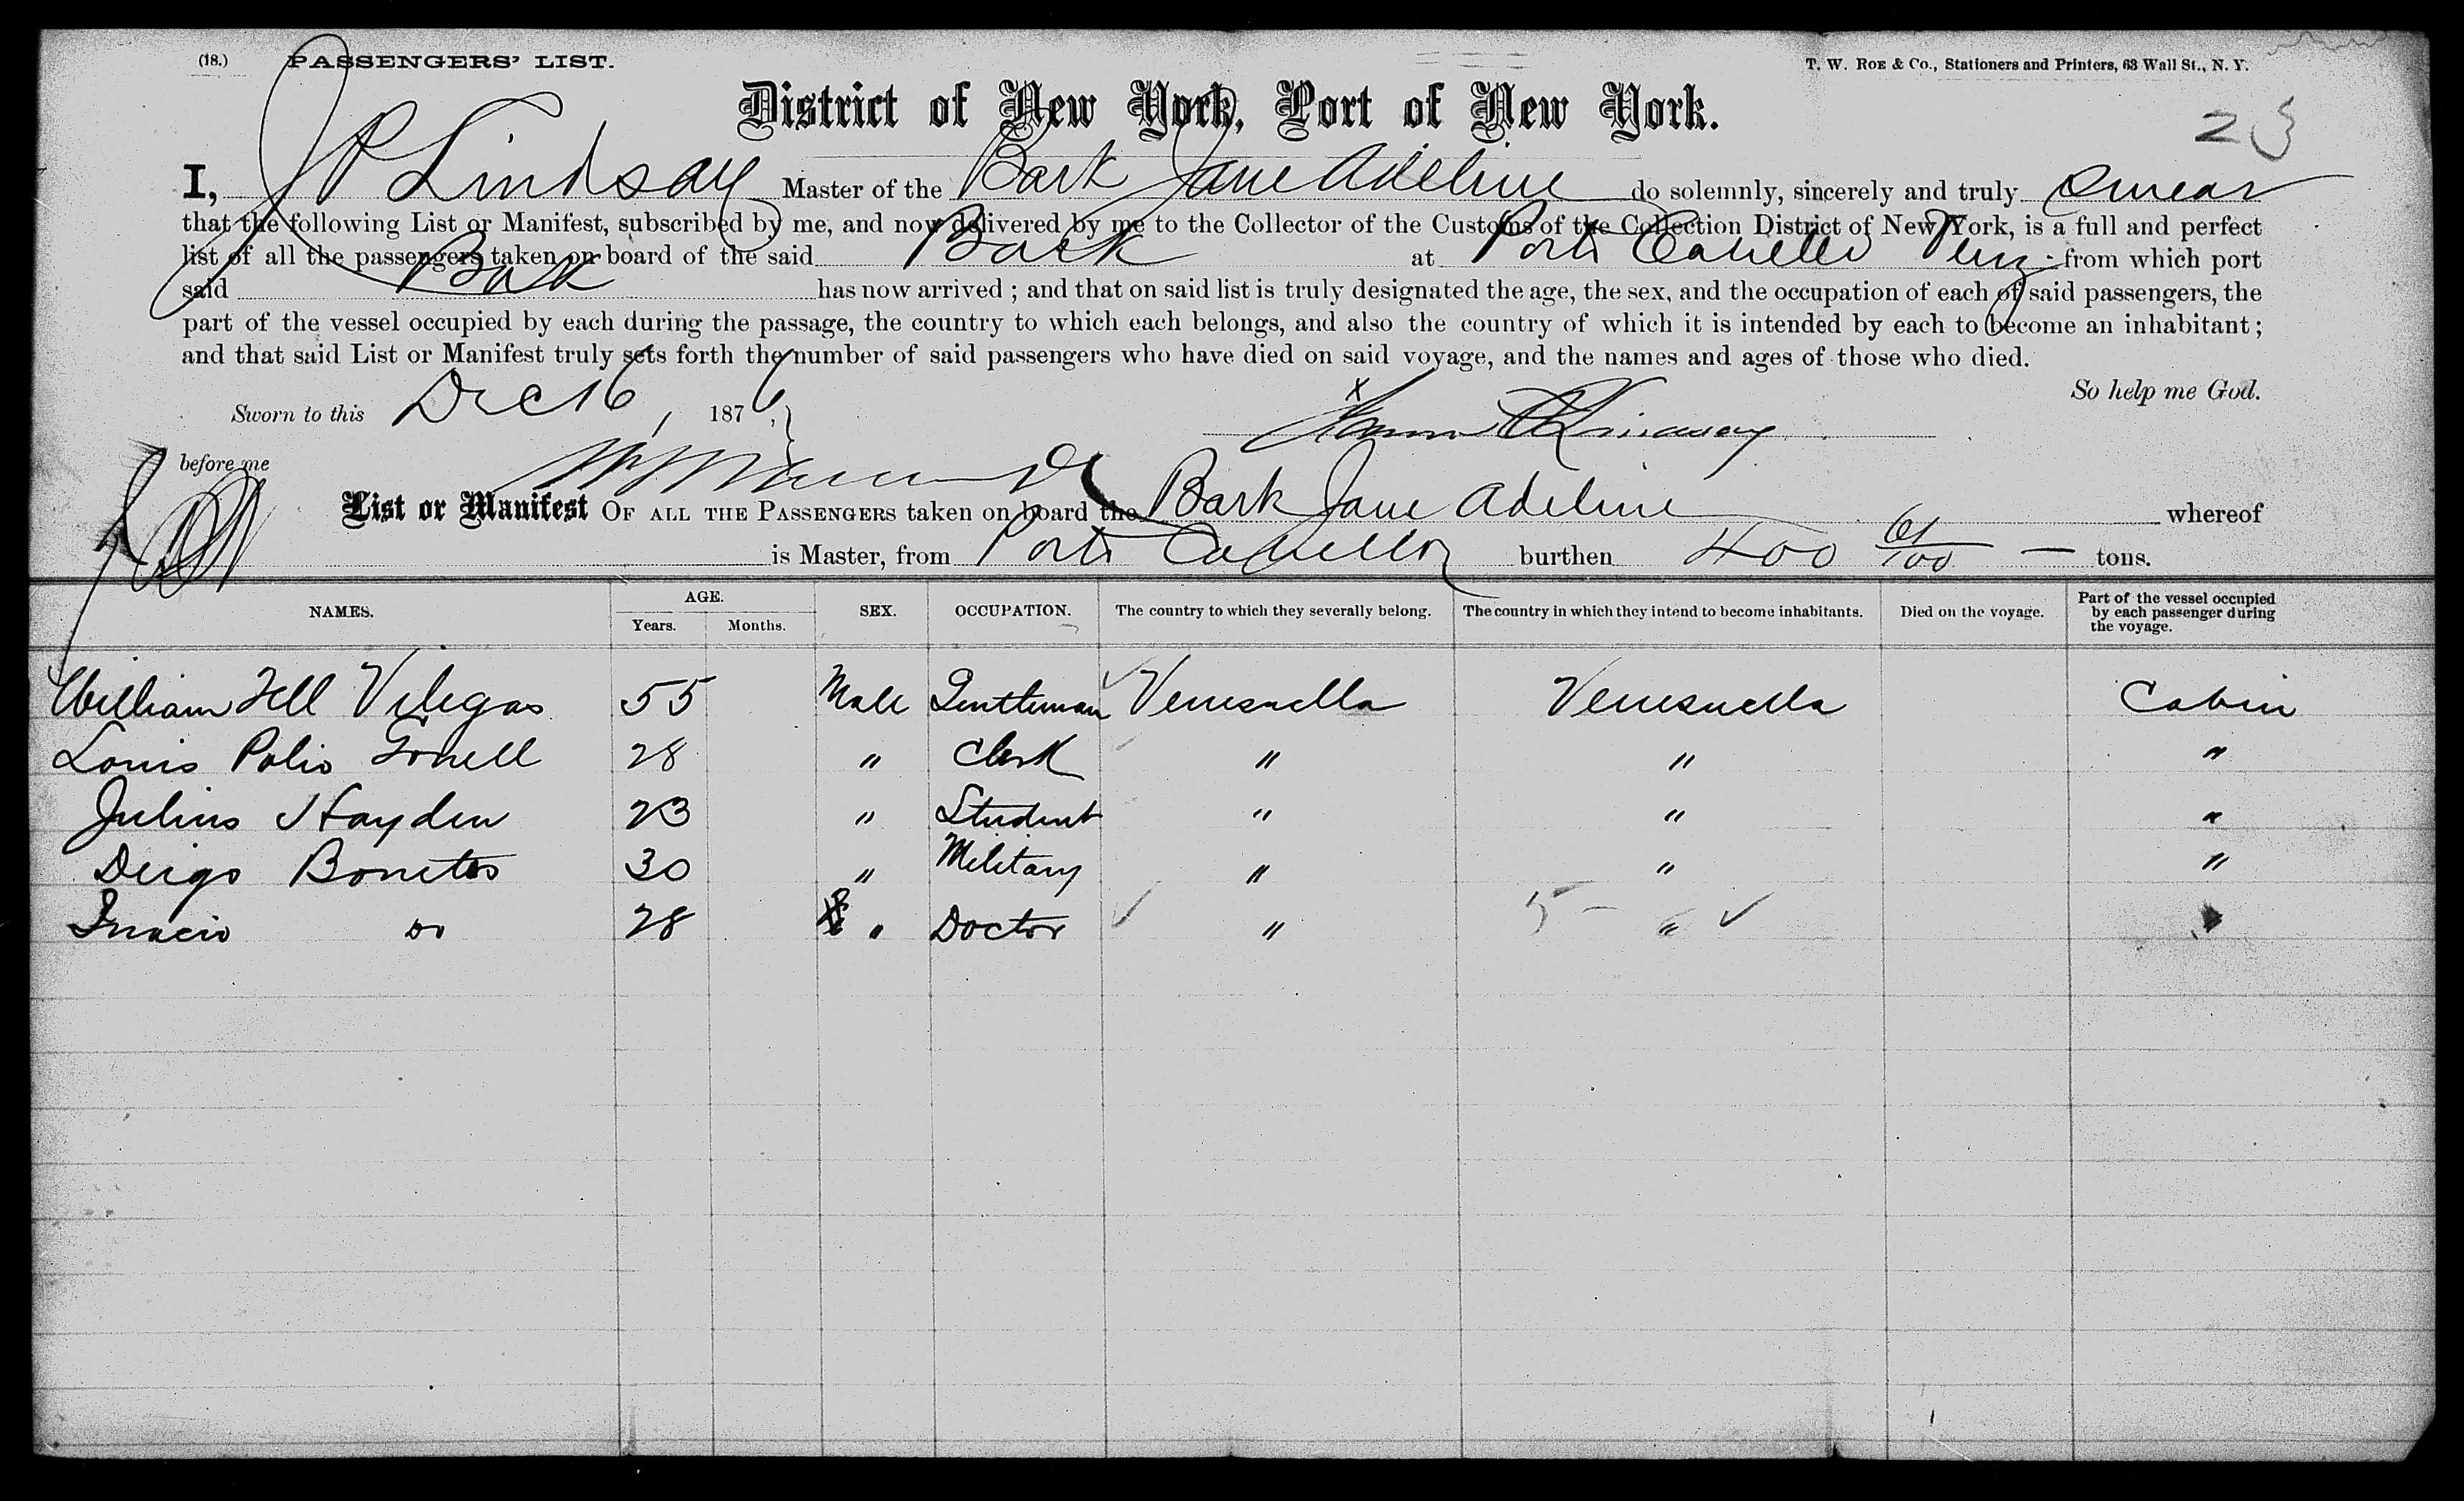 (18.) PASSENGERS' LIST. T. W. ROE & Co., Stationers and Printers, 63 Wall St., N. Y.
District of New York, Port of New York.
23
I, J P Lindsay Master of the Bark Jane Adeline do solemnly, sincerely and truly swear
that the following List or Manifest, subscribed by me, and now delivered by me to the Collector of the Customs of the Collection District of New York, is a full and perfect
list of all the passengers taken on board of the said Bark at Porto Cabello Venz. from which port
said Bark has now arrived ; and that on said list is truly designated the age, the sex, and the occupation of each of said passengers, the
part of the vessel occupied by each during the passage, the country to which each belongs, and also the country of which it is intended by each to become an inhabitant ;
and that said List or Manifest truly sets forth the number of said passengers who have died on said voyage, and the names and ages of those who died.
So help me God.
Sworn to this Dec 16, 1876, x
before me
List or Manifest OF ALL THE PASSENGERS taken on board the Bark Jane Adeline whereof
is Master, from Porto Cabello burthen 400 61/100 — tons.
NAMES. AGE. Years. Months. SEX. OCCUPATION. The country to which they severally belong. The country in which they intend to become inhabitants. Died on the voyage. Part of the vessel occupied by each passenger during the voyage.
William Tell Vilegas 55 Male Gentleman Venesuella Venesuella Cabin
Louis Polio 28 " Clerk " " "
Julius Hayden 23 " Student " " "
Deigo Bonitos 30 " Military " " "
Inacio Do 28 " Doctor " 5 — "